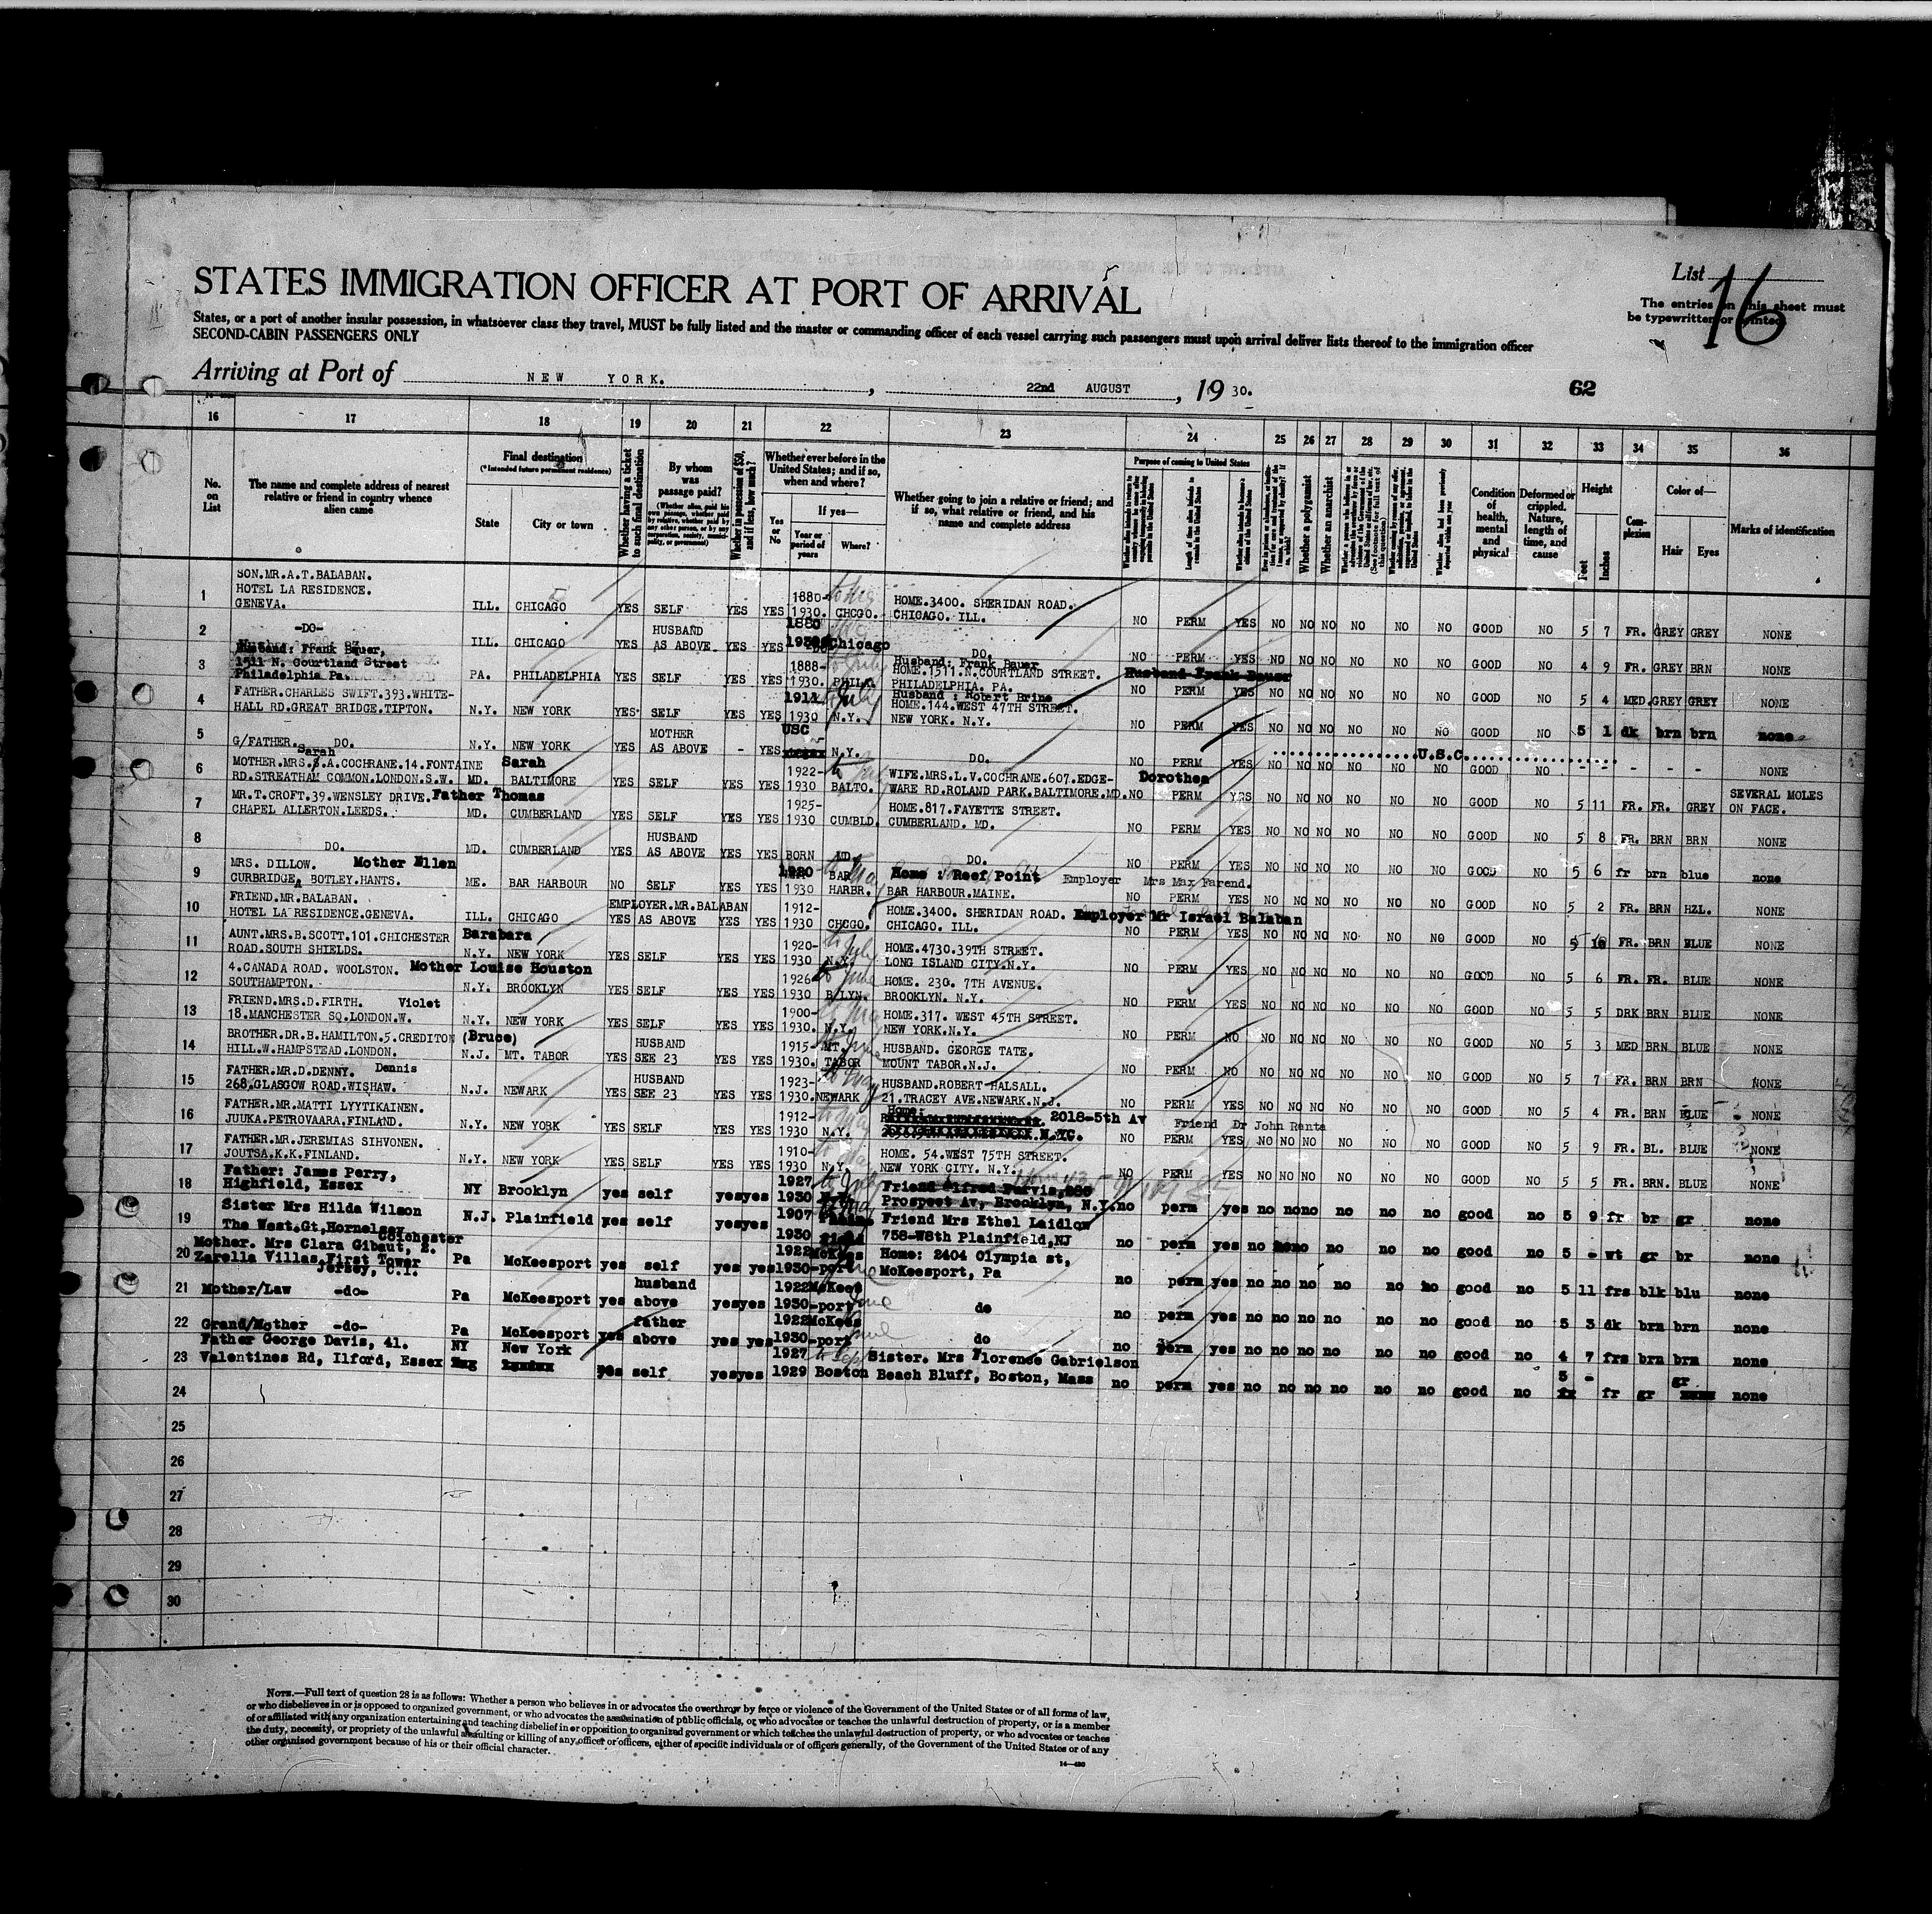 STATES IMMIGRATION OFFICER AT PORT OF ARRIVAL
List 16
The entries on this sheet must
be typewritten or printed
States, or a port of another insular possession, in whatsoever class they travel, MUST be fully listed and the master or commanding officer of each vessel carrying such passengers must upon arrival deliver lists thereof to the immigration officer
SECOND-CABIN PASSENGERS ONLY
Arriving at Port of NEW YORK. , 22nd AUGUST , 19 30.
62
16 17 18 19 20 21 22 23 24 25 26 27 28 29 30 31 32 33 34 35 36
No. on List
The name and complete address of nearest relative or friend in country whence alien came
Final destination
(*Intended future permanent residence)
State
City or town
Whether having a ticket to such final destination
By whom was passage paid?
Whether in possession of $50, and if less, how much?
Whether ever before in the United States; and if so, when and where?
Yes or No
If yes—
Year or period of years
Where?
Whether going to join a relative or friend; and if so, what relative or friend, and his name and complete address
Purpose of coming to United States
Length of time alien intends to remain in the United States
Whether a polygamist
Whether an anarchist
Condition of health, mental and physical
Deformed or crippled. Nature, length of time, and cause
Height
Feet
Inches
Complexion
Color of—
Hair
Eyes
Marks of identification
1 SON.MR.A.T.BALABAN.
HOTEL LA RESIDENCE.
GENEVA. ILL. CHICAGO YES SELF YES YES 1880-1930. CHCGO. HOME.3400. SHERIDAN ROAD. CHICAGO. ILL. NO PERM YES NO NO NO NO NO NO GOOD NO 5 7 FR. GREY GREY NONE
2 -DO- ILL. CHICAGO YES HUSBAND AS ABOVE YES YES 1880 Chicago DO. NO PERM YES NO NO NO NO NO NO GOOD NO 4 9 FR. GREY BRN NONE
3 Husband: Frank Bauer,
1511 N. Courtland Street
Philadelphia Pa. PA. PHILADELPHIA YES SELF YES YES 1888-1930. PHILA. Husband: Frank Bauer HOME.1511.N.COURTLAND STREET. PHILADELPHIA. PA. Husband Frank Bauer NO PERM YES NO NO NO NO NO NO GOOD NO 5 4 MED. GREY GREY NONE
4 FATHER.CHARLES SWIFT.393.WHITE-
HALL RD.GREAT BRIDGE.TIPTON. N.Y. NEW YORK YES SELF YES YES 1911 1930 N.Y. Husband : Robert Brine HOME.144.WEST 47TH STREET. NEW YORK. N.Y. NO PERM YES NO NO NO NO NO NO GOOD NO 5 1 dk brn brn none
5 G/FATHER. DO. N.Y. NEW YORK YES MOTHER AS ABOVE - YES USC N.Y. DO. NO PERM YES U.S.C. NO NO NO NO NO NO GOOD NO - - - - - NONE
6 MOTHER.MRS.S.A.COCHRANE.14.FONTAINE Sarah Sarah
RD.STREATHAM COMMON.LONDON.S.W. MD. BALTIMORE YES SELF YES YES 1922-1930 BALTO. WIFE.MRS.L.V.COCHRANE.607.EDGE- Dorothea WARE RD.ROLAND PARK.BALTIMORE.MD. NO PERM YES NO NO NO NO NO NO GOOD NO 5 11 FR. FR. GREY SEVERAL MOLES ON FACE.
7 MR.T.CROFT.39.WENSLEY DRIVE. Father Thomas
CHAPEL ALLERTON.LEEDS. MD. CUMBERLAND YES SELF YES YES 1925-1930 CUMBLD. HOME.817.FAYETTE STREET. CUMBERLAND. MD. NO PERM YES NO NO NO NO NO NO GOOD NO 5 8 FR. BRN BRN NONE
8 DO. MD. CUMBERLAND YES HUSBAND AS ABOVE YES YES BORN MD. DO. NO PERM YES NO NO NO NO NO NO GOOD NO 5 6 fr brn blue none
9 MRS. DILLOW. Mother Ellen
CURBRIDGE, BOTLEY.HANTS. ME. BAR HARBOUR NO SELF YES YES 1920 1930 BAR HARBR. Home : Reef Point Employer Mrs Max Farend. BAR HARBOUR.MAINE. NO PERM YES NO NO NO NO NO NO GOOD NO 5 2 FR. BRN HZL. NONE
10 FRIEND.MR.BALABAN.
HOTEL LA RESIDENCE.GENEVA. ILL. CHICAGO YES EMPLOYER.MR.BALABAN AS ABOVE YES YES 1912-1930 CHCGO. HOME.3400. SHERIDAN ROAD. Employer Mr Israel Balaban CHICAGO. ILL. NO PERM YES NO NO NO NO NO NO GOOD NO 5 FR. BRN BLUE NONE
11 AUNT.MRS.B.SCOTT.101.CHICHESTER Barabara
ROAD.SOUTH SHIELDS. N.Y. NEW YORK YES SELF YES YES 1920-1930 N.Y. HOME.4730.39TH STREET. LONG ISLAND CITY.N.Y. NO PERM YES NO NO NO NO NO NO GOOD NO 5 6 FR. FR. BLUE NONE
12 4.CANADA ROAD. WOOLSTON. Mother Louise Houston
SOUTHAMPTON. N.Y. BROOKLYN YES SELF YES YES 1926 1930 B/LYN. HOME. 230. 7TH AVENUE. BROOKLYN. N.Y. NO PERM YES NO NO NO NO NO NO GOOD NO 5 5 DRK BRN BLUE NONE
13 FRIEND.MRS.D.FIRTH. Violet
18.MANCHESTER SQ.LONDON.W. N.Y. NEW YORK YES SELF YES YES 1900-1930. N.Y. HOME.317. WEST 45TH STREET. NEW YORK.N.Y. NO PERM NO NO NO NO NO NO NO GOOD NO 5 3 MED BRN BLUE NONE
14 BROTHER.DR.B.HAMILTON.5.CREDITON (Bruce)
HILL.W.HAMPSTEAD.LONDON. N.J. MT. TABOR YES HUSBAND SEE 23 YES YES 1915 1930. MT. TABOR HUSBAND. GEORGE TATE. MOUNT TABOR.N.J. NO PERM NO NO NO NO NO NO NO GOOD NO 5 7 FR. BRN BRN NONE
15 FATHER.MR.D.DENNY. Dennis
268.GLASGOW ROAD.WISHAW. N.J. NEWARK YES HUSBAND SEE 23 YES YES 1923-1930. NEWARK HUSBAND.ROBERT HALSALL. 21.TRACEY AVE.NEWARK.N.J. NO PERM YES NO NO NO NO NO NO GOOD NO 5 4 FR. BRN BLUE NONE
16 FATHER.MR.MATTI LYYTIKAINEN.
JUUKA.PETROVAARA.FINLAND. N.Y. NEW YORK YES SELF YES YES 1912-1930 N.Y. Home: 2018-5th Av N.YC. Friend Dr John Ranta NO PERM YES NO NO NO NO NO NO GOOD NO 5 9 FR. BL. BLUE NONE
17 FATHER.MR.JEREMIAS SIHVONEN.
JOUTSA.K.K.FINLAND. N.Y. NEW YORK YES SELF YES YES 1910-1930 N.Y. HOME. 54.WEST 75TH STREET. NEW YORK CITY. N.Y. NO PERM YES NO NO NO NO NO NO GOOD NO 5 5 FR. BRN. BLUE NONE
18 Father: James Perry,
Highfield, Essex NY Brooklyn yes self yes yes 1927 1930 Friend Alfred Prospect Av, Brooklyn, N.Y. no perm yes no no no no no no good no 5 9 fr br gr none
19 Sister Mrs Hilda Wilson
The West.Gt.Hornelsey Colchester N.J. Plainfield yes self yes yes 1907 1930 Friend Mrs Ethel Laidlow 758-W8th Plainfield,NJ no perm yes no no no no no good no 5 - wt gr br none
20 Mother. Mrs Clara Gibaut, 2.
Zarella Villas,First Tower
Jersey, C.I. Pa McKeesport yes self yes yes 1922 1930 McKees-port Home: 2404 Olympia st, McKeesport, Pa no perm yes no no no no no no good no 5 11 frs blk blu none
21 Mother/Law -do- Pa McKeesport yes husband above yes yes 1922 1930 McKees-port do no perm yes no no no no no no good no 5 3 dk brn brn none
22 Grand/Mother -do- Pa McKeesport yes father above yes yes 1922 1930 McKees-port do no perm yes no no no no no no good no 4 7 frs brn brn none
23 Father George Davis, 41.
Valentines Rd, Ilford, Essex NY New York yes self yes yes 1927 1929 Boston Sister. Mrs Florence Gabrielson Beach Bluff, Boston, Mass no perm yes no no no no no no good no 5 - fr gr gr none
24
25
26
27
28
29
30
NOTE.—Full text of question 28 is as follows: Whether a person who believes in or advocates the overthrow by force or violence of the Government of the United States or of all forms of law,
or who disbelieves in or is opposed to organized government, or who advocates the assassination of public officials, or who advocates or teaches the unlawful destruction of property, or is a member
of or affiliated with any organization entertaining and teaching disbelief in or opposition to organized government or which teaches the unlawful destruction of property, or who advocates or teaches
the duty, necessity, or propriety of the unlawful assaulting or killing of any officer or officers, either of specific individuals or of officers generally, of the Government of the United States or of any
other organized government because of his or their official character.
14—430